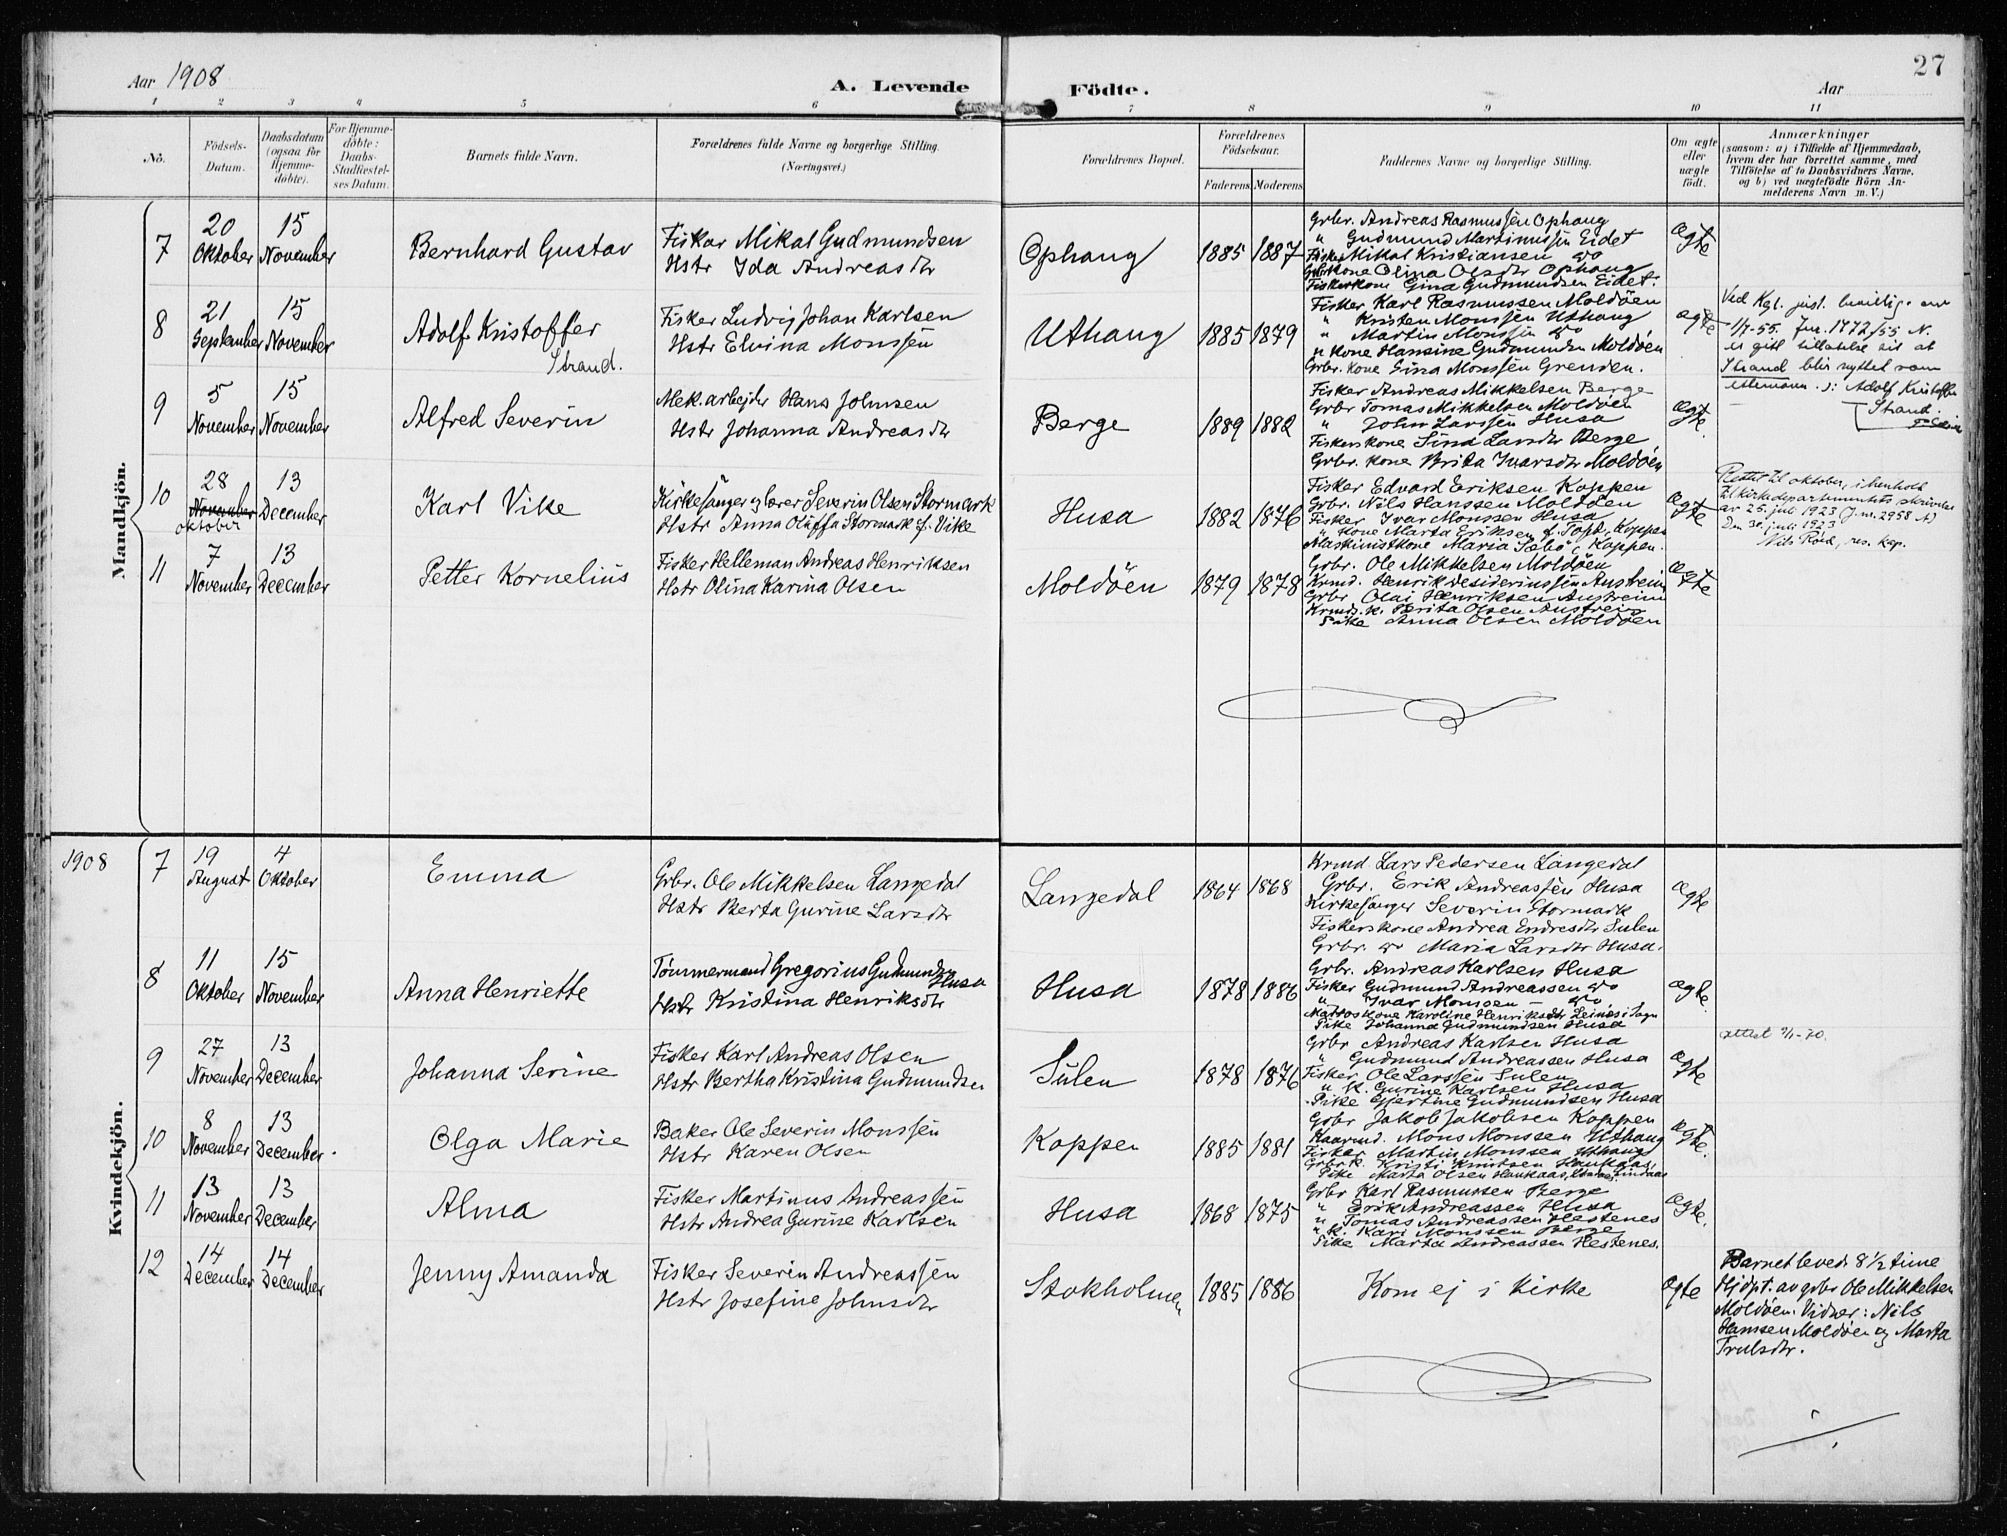 27
Aar 1908
A. Levende Födte.
Aar
1 2 3 4 5 6 7 8 9 10 11
No.
Födsels-
Datum.
Daabsdatum
(ogsaa för
Hjemme-
döbte).
For Hjemme-
döbte:
Daabs-
Stadfæstel-
ses Datum.
Barnets fulde Navn.
Forældrenes fulde Navne og borgerlige Stilling.
(Næringsvei.)
Forældrenes Bopæl.
Forældrenes
Födselsaar.
Faderens.
Moderens.
Faddernes Navne og borgerlige Stilling.
Om ægte
eller
uægte
födt.
Anmærkninger
(saasom: a) i Tilfælde af Hjemmedaab,
hvem der har forrettet samme, med
Tilföielse af to Daabsvidners Navne,
og b) ved uægtefödte Börn An-
melderens Navn m. V.)
Mandkjön.
7
20
Oktober
15
November
Bernhard Gustav
Fisker Mikal Gudmundsen
Hstr Ida Andreasdtr
Ophaug
1885 1887
Grbr. Andreas Rasmussen Ophaug
" Gudmund Martinussen Eidet
Fisker Mikal Kristiansen do
Grbrkone Olina Olsdtr Ophaug
Fiskerkone Gina Gudmundsen Eidet.
ægte
8
21
September
15
November
Adolf Kristoffer
Strand.
Fisker Ludvig Johan Karlsen
Hstr Elvina Monssen
Uthaug
1885 1879
Fisker Karl Rasmussen Moldöen
" Kristen Monssen Uthaug
" Martin Monssen do
" kone Hansine Gudmundsen Moldöen
Grbr. kone Gina Monssen Grenden.
ægte
Ved Kgl. just. bevillig. av
1/7-55. Jnr. 1772/55 N.
er gitt tillatelse til at
Strand blir nyttet som
etternavn. ɔ: Adolf Kristoffer
Strand.
9
5
November
15
November
Alfred Severin
Mek. arbejder Hans Johnsen
Hstr Johanna Andreasdtr
Berge
1889 1882
Fisker Andreas Mikkelsen Berge
Grbr Tomas Mikkelsen Moldöen
" John Larssen Husa
Fiskerkone Sina Larsdtr Berge
Grbr. kone Brita Ivarsdtr Moldöen
ægte.
10
28
November
oktober
13
December
Karl Vike
Kirkesanger og lærer Severin Olsen Stormark
Hstr Anna Oluffa Stormark f. Vike
Husa
1882 1876
Fisker Edvard Eriksen Koppen
Grbr. Nils Hanssen Moldöen
Fisker Ivar Monssen Husa
" kone Marta Eriksen f. Toft, Koppen
Maskinistkone Maria Sæbö, Koppen.
ægte
Rettet til oktober, i henhold
til kirkedepartementets skrivelse
av 25. juli 1923 (J.nr. 2958 A)
Den 30. juli 1923
Nils Röed, res. kap.
11
7
November
13
December
Petter Kornelius
Fisker Helleman Andreas Henriksen
Hstr Olina Karina Olsen
Moldöen
1879 1878
Grbr. Ole Mikkelsen Moldöen
Krmd. Henrik Desideriussen Austreim
Grbr Olai Henriksen Austreim
Krmds. k. Berita Olsen Austreim
Pike Anna Olsen Moldöen
ægte
Kvindekjön.
1908
7
19
August
4
Oktober
Emma
Grbr. Ole Mikkelsen Langedal
Hstr Berta Gurine Larsdtr
Langedal
1864 1868
Krmd Lars Pedersen Langedal
Grbr. Erik Andreassen Husa
Kirkesanger Severin Stormark
Fiskerskone Andrea Endresdtr Sulen
Grbr. do Maria Larsdtr Husa.
ægte
8
11
Oktober
15
November
Anna Henriette
Tömmermand Gregorius Gudmundsen
Husa
Hstr Kristina Henriksdtr
Husa
1878 1886
Grbr. Andreas Karlsen Husa
Fisker Gudmund Andreassen do
" Ivar Monssen – do
Matroskone Karoline Henriksdtr Leinæs i Sogn
Pike Johanna Gudmundsen Husa
ægte.
9
27
November
13
December
Johanna Serine
Fisker Karl Andreas Olsen
Hstr Bertha Kristina Gudmundsen
Sulen
1878 1876
Grbr Andreas Karlsen Husa
" Gudmund Andreassen Husa
Fisker Ole Larssen Sulen
" k. Gurine Karlsen Husa
Pike Gjertine Gudmundsen Husa
ægte
attest
10
8
November
13
December.
Olga Marie
Baker Ole Severin Monssen
Hstr Karen Olsen
Koppen
1885 1881
Grbr Jakob Jakobsen Koppen
Kaarmd. Mons Monssen Uthaug
Fisker Martin Monssen Uthaug
Grbr k. Kristi Knutsen Haukaas
Pike Marta Olsen Haukaas, Lindaas
ægte.
11
13
November
13
December
Alma
Fisker Martinus Andreassen
Hstr Andrea Gurine Karlsen
Husa
1868 1875
Grbr Karl Rasmussen Berge
" Erik Andreassen Husa
" Tomas Andreassen Hestenes
" k. Kari Monssen Berge
Pike Marta Andreassen Hestenes.
ægte.
12
14
December
14
December
Jenny Amanda
Fisker Severin Andreassen
Hstr Josefine Johnsdtr
Stokholmen
1885 1886
Kom ej i kirke
ægte
Barnet levede 8 1/2 time
Hjdpt. av grbr Ole Mikkelsen
Moldöen. Vidner: Nils
Hansen Moldöen og Marta
Trulsdtr.